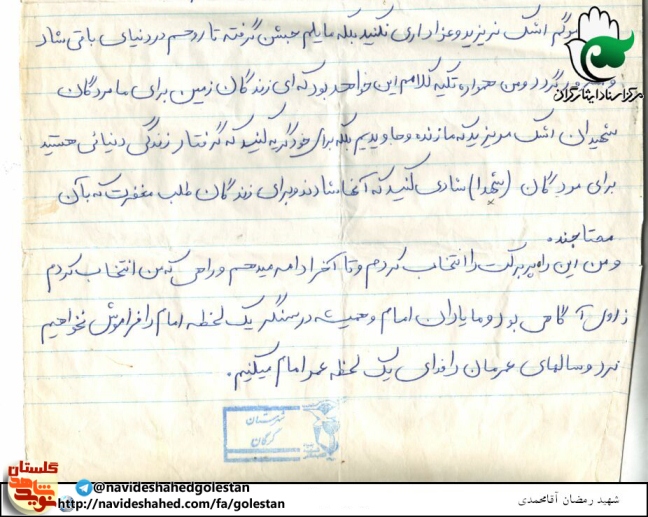 سوگم اشک نریزید و عزاداری نکنید بلکه مایلم جشن گرفته تا روحم در دنیای باقی شاد
گردد و من همواره تکیه کلامم این خواهد بود که ای زندگان زمین برای ما مردگان
شهیدان اشک مریزید که ما زنده و جاویدیم بلکه برای خود گریه کنید که گرفتار زندگی دنیائی هستید
برای مردگان (شهدا) شادی کنید که آنها شادند و برای زندگان طلب مغفرت که بآن
محتاجند.
و من این راه پر برکت را انتخاب کردم و تا آخر ادامه میدهم و راهی که من انتخاب کردم
ز اول آگاهی بود و ما یاران امام و همیشه در سنگر یک لحظه امام را فراموش نخواهیم
کرد و سالهای عمرمان را فدای یک لحظه عمر امام میکنیم.
مرکز اسناد ایثارگران
شهرستان
گرگان
گلستان
نوید شاهد
@navideshahedgolestan
http://navideshahed.com/fa/golestan
شهید رمضان آقامحمدی